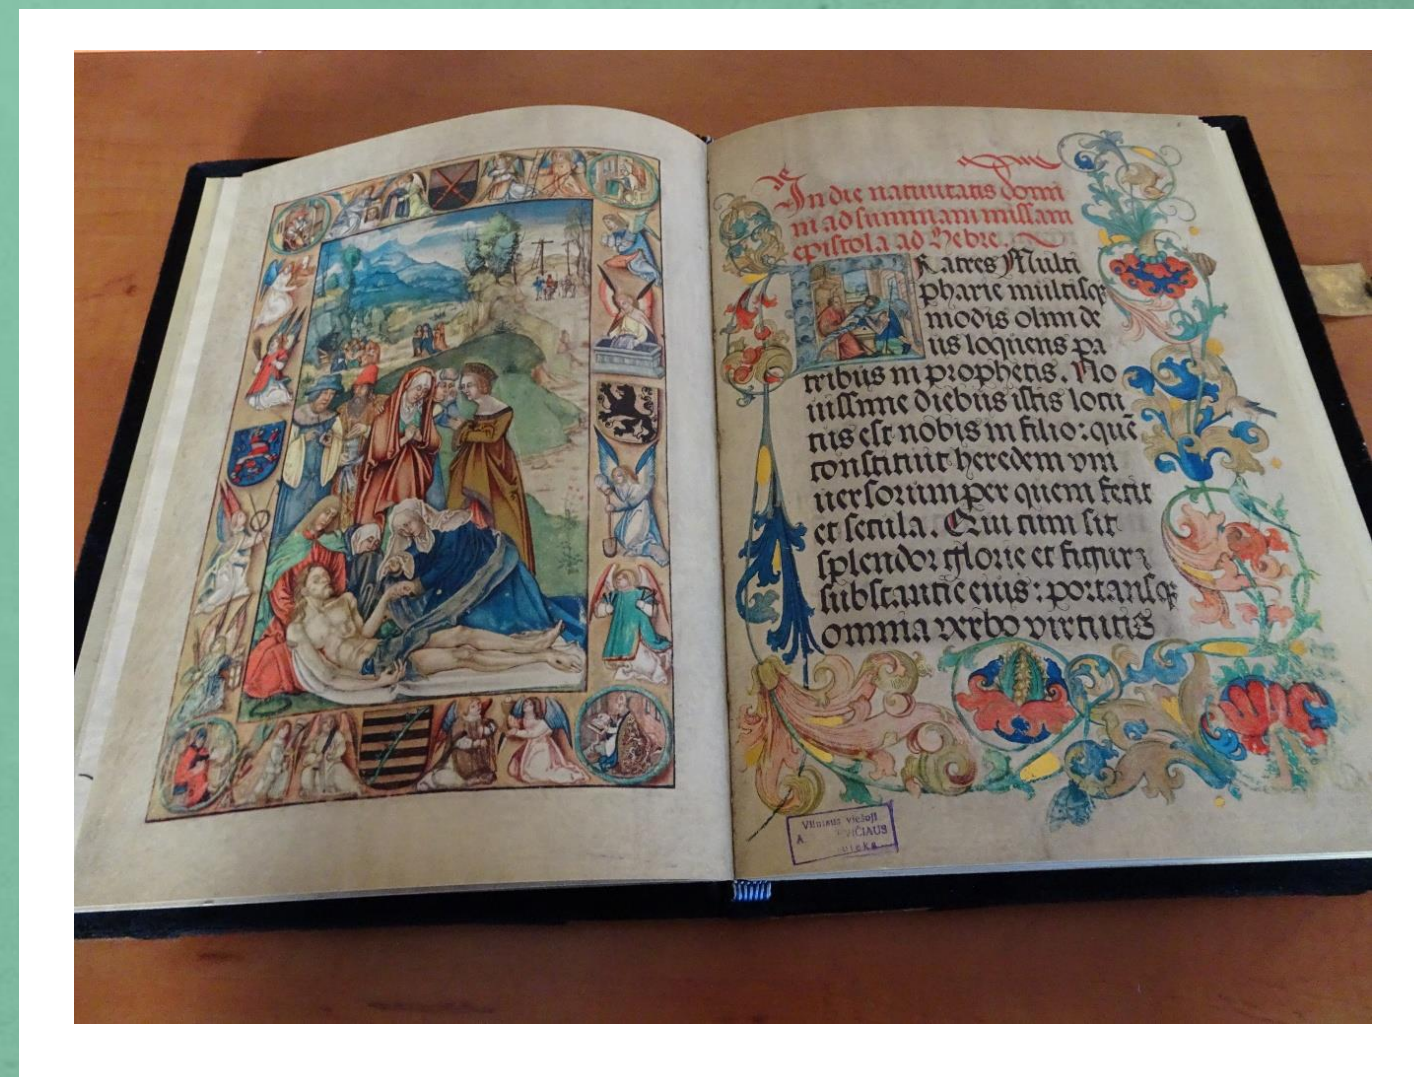 In die nativitatis domi
ni ad summam missam
epistola ad Hebre.
Fratres Multi
pharie multisq
modis olim de
us loquens pa
tribus in prophetis. No
vissime diebus istis locu
tus est nobis in filio: quē
constituit heredem vni
versorum per quem fecit
et secula. Qui cum sit
splendor glorie et figura
substantie eius: portansq
omnia verbo virtutis
Vilniaus viešoji
A VIČIAUS